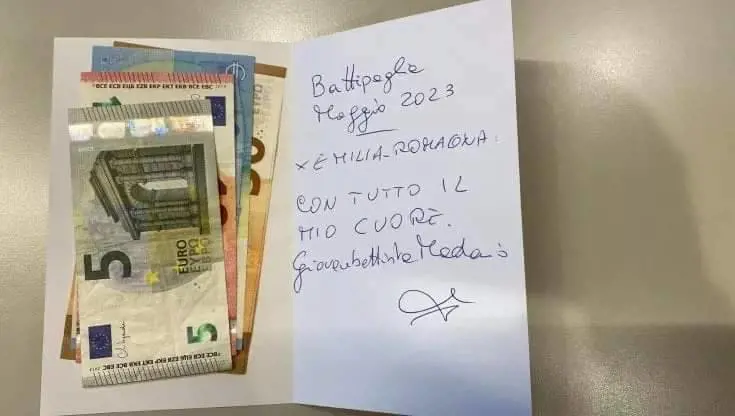 BCE ECB ЕЦБ EZB EKP EKT EKB BCE EBC
50
EURO
ΕΥΡΩ
ЕВРО
5
5
BCE ECB ЕЦБ EZB EKP EKT EKB BCE EBC
Battipaglia
Maggio 2023
x EMILIA-ROMAGNA.
CON TUTTO IL
MIO CUORE.